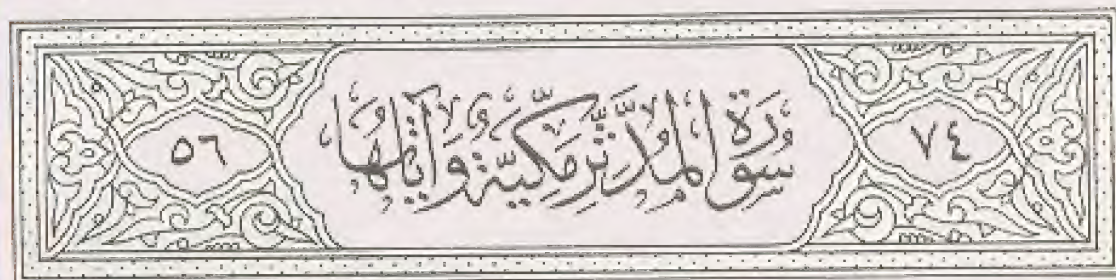 ٧٤ سُورَةُ المُدَّثِّرِ مَكِّيَّةٌ وَآيَاتُهَا ٥٦